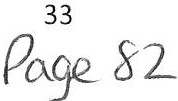 33
Page 82